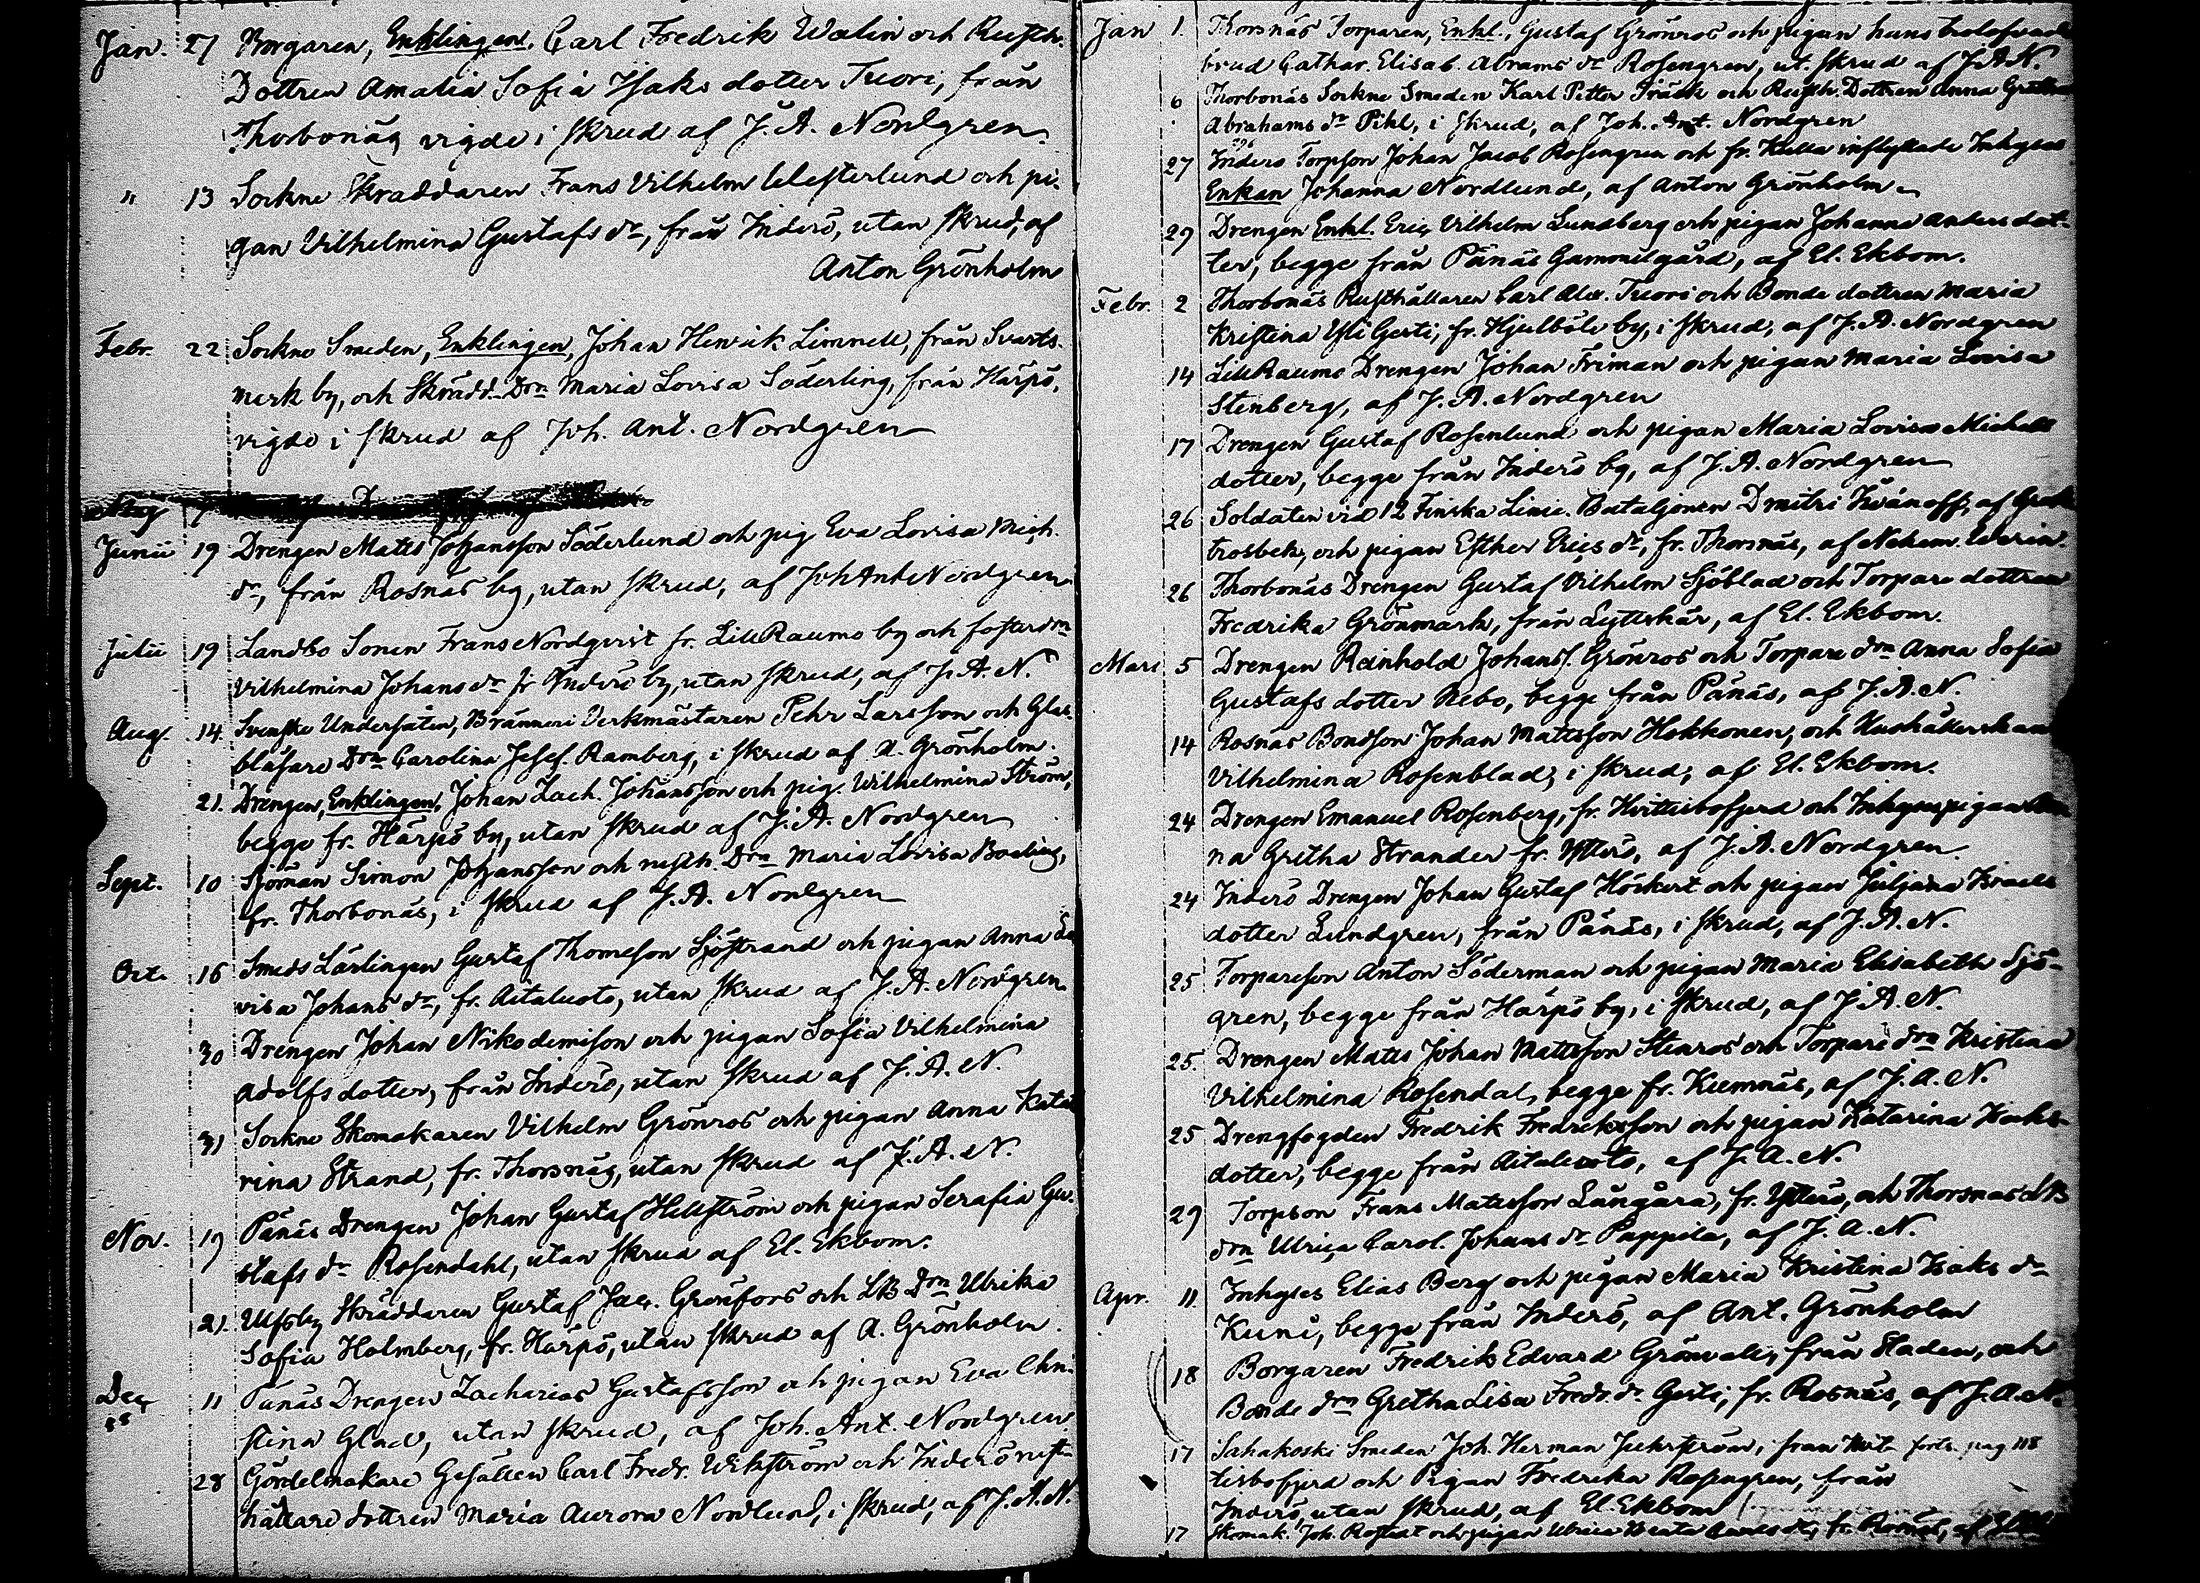 Jan. 27 Borgaren, Enklingen, Carl Fredrik Walin och Rusth.
Dottren Amalia Sofia Isaks dotter Tuori, från
Thorbonäs vigde i skrud af J. A. Nordgren
" 13 Sockne Skräddaren Frans Vilhelm Westerlund och pi-
gan Vilhelmina Gustafs dr, från Inderö, utan skrud, af
Anton Grönholm
Febr. 22 Sockne Smeden, Enklingen, Johan Henrik Limnell, från Svarts-
mark by, och Skrädd. Drn Maria Lovisa Söderling, från Härpö,
vigde i skrud af Joh. Ant. Nordgren
Maj
Junii 19 Drengen Matts Johansson Söderlund och pig Eva Lovisa Mich.
dr, från Rosnäs by, utan skrud, af Joh Ant Nordgren
Julii 19 Landbo Sonen Frans Nordqvist fr. Lill Raumo by och foster drn
Vilhelmina Johans dr fr Inderö by, utan skrud, af J. A. N.
Aug. 14 Svenske Undersåten, Bränneri Verkmästaren Pehr Larsson och Glas-
blåsare Drn Carolina Josef. Ramberg, i skrud af A. Grönholm.
21. Drengen, Enklingen, Johan Zach. Johansson och pig. Wilhelmina Ström,
begge fr. Härpö by, utan skrud af J. A. Nordgren
Sept. 10 Sjöman Simon Johansson och rusth. Drn Maria Lovisa Boeling,
fr. Thorbonäs, i skrud af J. A. Nordgren
Oct. 16 Smeds Lärlingen Gustaf Thomsson Sjöstrand och pigan Anna Lo
visa Johans dr, fr. Aitaluoto, utan skrud af J. A. Nordgren
30 Drengen Johan Nikodemisson och pigan Sofia Vilhelmina
Adolfs dotter, från Inderö, utan skrud af J. A. N.
31 Sockne Skomakaren Vilhelm Grönros och pigan Anna Kata
rina Strand, fr. Thorsnäs, utan skrud af J. A. N.
Nov. 19 Pånäs Drengen Johan Gustaf Hellström och pigan Serafia Gu-
stafs dr Rosendahl, utan skrud af El. Ekbom.
21. Ulfsby Skräddaren Gustaf Jac. Grönfors och LB Drn Ulrika
Sofia Holmberg, fr. Härpö, utan skrud af A. Grönholm.
Dec 11 Pånäs Drengen Zacharias Gustafsson och pigan Eva Chri-
stina Glad, utan skrud, af Joh. Ant. Nordgren
28 Gördelmakare Gesällen Carl Fredr. Wikström och Inderö rust-
hållare dottren Maria Aurora Nordlund, i skrud, af J. A. N.
Jan 1. Thorsnäs Torparen, Enkl., Gustaf Grönros och pigan hans trolofvade
brud Cathar. Elisab. Abrams dr Rosengren, ut. skrud af J. A. N.
6 Thorbonäs Sockne Smeden Karl Petter Träsk och Rusth. Dottren Anna Gretha
Abrahams dr Pihl, i skrud, af Joh. Ant. Nordgren
27 Inderö Torpson Johan Jacob Rosengren och fr. Kulla inflyttade Inhyses
Enkan Johanna Nordlund, af Anton Grönholm
29 Drengen Enkl. Eric Vilhelm Lundberg och pigan Johanna Anders dot-
ter, begge från Pånäs Gammelgård, af El. Ekbom.
Febr. 2 Thorbonäs Rusthållaren Carl Alex. Tuori och Bonde dottren Maria
Kristina Yli Gerti, fr. Hjulböle by, i skrud, af J. A. Nordgren
14 Lill Raumo Drengen Johan Friman och pigan Maria Lovisa
Stenberg, af J. A. Nordgren
17 Drengen Gustaf Rosenlund och pigan Maria Lovisa Michels
dotter, begge från Inderö by, af J. A. Nordgren
26 Soldaten vid 12 Finska Linie Bataljonen Dmitri Iwanoff, af Grek
trosbek, och pigan Esther Erics dr, fr. Thorsnäs, af Nehem.
26 Thorbonäs Drengen Gustaf Vilhelm Sjöblad och Torpare dottren
Fredrika Grönmark, från Lyttskär, af El. Ekbom.
Mars 5 Drengen Reinhold Johanss. Grönros och Torpare drn Anna Sofia
Gustafs dotter Nebo, begge från Pånäs, af J. A. N.
14 Rosnäs Bondson Johan Mattsson Hokkonen, och Hushållerskan
Vilhelmina Rosenblad, i skrud, af El. Ekbom.
24 Drengen Emanuel Rosenberg, fr. Hvittisbofjerd och Inhyses pigan An
na Gretha Strander fr. Ytterö, af J. A. Nordgren
24 Inderö Drengen Johan Gustaf Höckert och pigan Juljana Israels
dotter Lundgren, från Pånäs, i skrud, af J. A. N.
25 Torpareson Anton Söderman och pigan Maria Elisabeth Sjö-
gren, begge från Härpö by, i skrud, af J. A. N.
25. Drengen Matts Johan Mattsson Stenros och Torpare drn Kristina
Vilhelmina Rosendal, begge fr. Kumnäs, af J. A. N.
25 Drengfogden Fredrik Fredriksson och pigan Katarina Isaks-
dotter, begge från Aitaluoto, af J. A. N.
29 Torpson Frans Mattsson Långåra, fr. Ytterö, och Thorsnäs LB
drn Ulrica Carol. Johans dr Pappila, af J. A. N.
Apr. 11. Inhyses Elias Berg och pigan Maria Kristina Isaks dr
Kuni, begge från Inderö, af Ant. Grönholm
18 Borgaren Fredrik Edvard Grönvall, från Staden, och
Bonde drn Gretha Lisa Fredr. dr Gerti, fr. Rosnäs, af J. A. N.
17 Sahakoski Smeden Joh. Herman Juhrström, från Hvit- forts. pag 118
tisbofjerd och Pigan Fredrika Rosengren, från
Inderö, utan skrud, af El. Ekbom
17 Skomak. Joh. och pigan Ulrica fr. Rosnäs, af